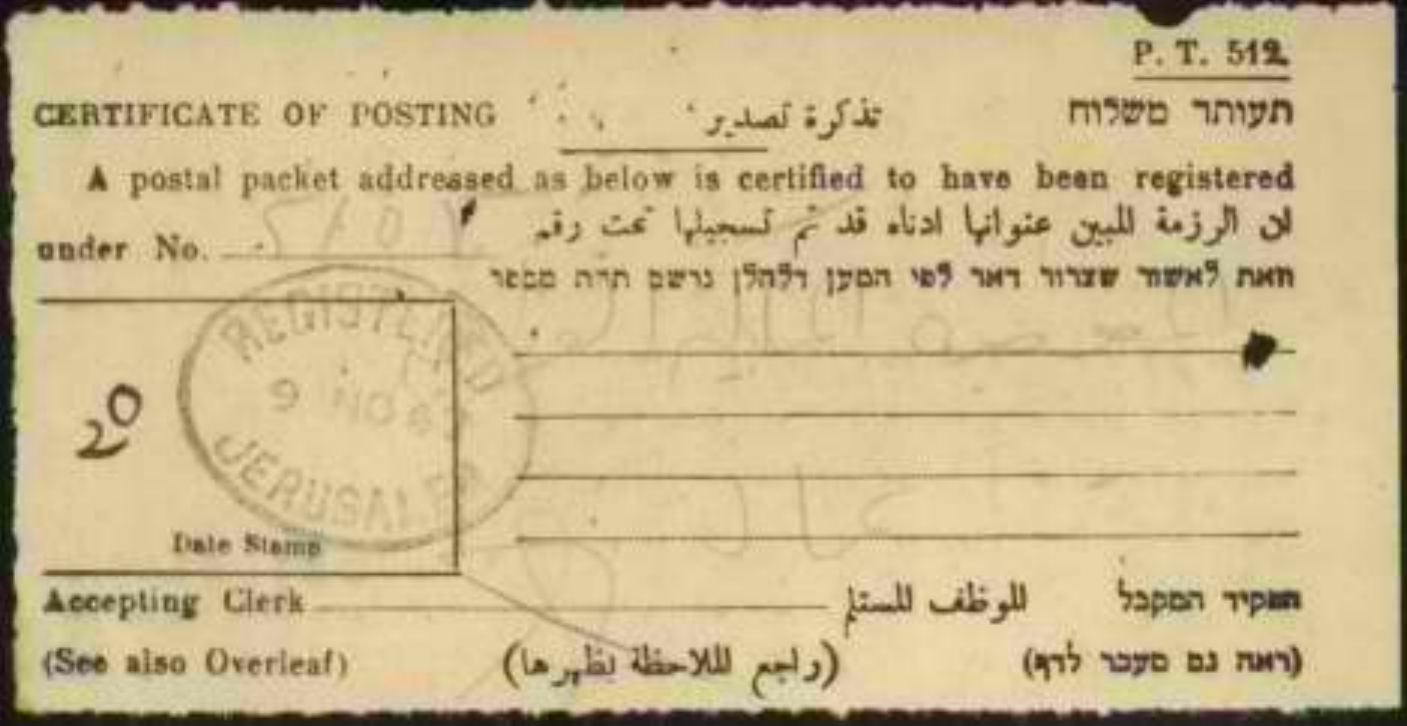 P. T. 512
CERTIFICATE OF POSTING تذكرة تصدير תעותר משלוח
A postal packet addressed as below is certified to have been registered
ان الرزمة المبين عنوانها ادناه قد تم تسجيلها تحت رقم
under No.
וזאת לאשור שצרור דאר לפי המען דלהלן נרשם תחת מספר
REGISTERED
9 NO
JERUSALEM
20
Date Stamp
Accepting Clerk الموظف المستلم הפקיד המקבל
(See also Overleaf) (راجع الملاحظة بظهرها) (ראה גם מעבר לדף)